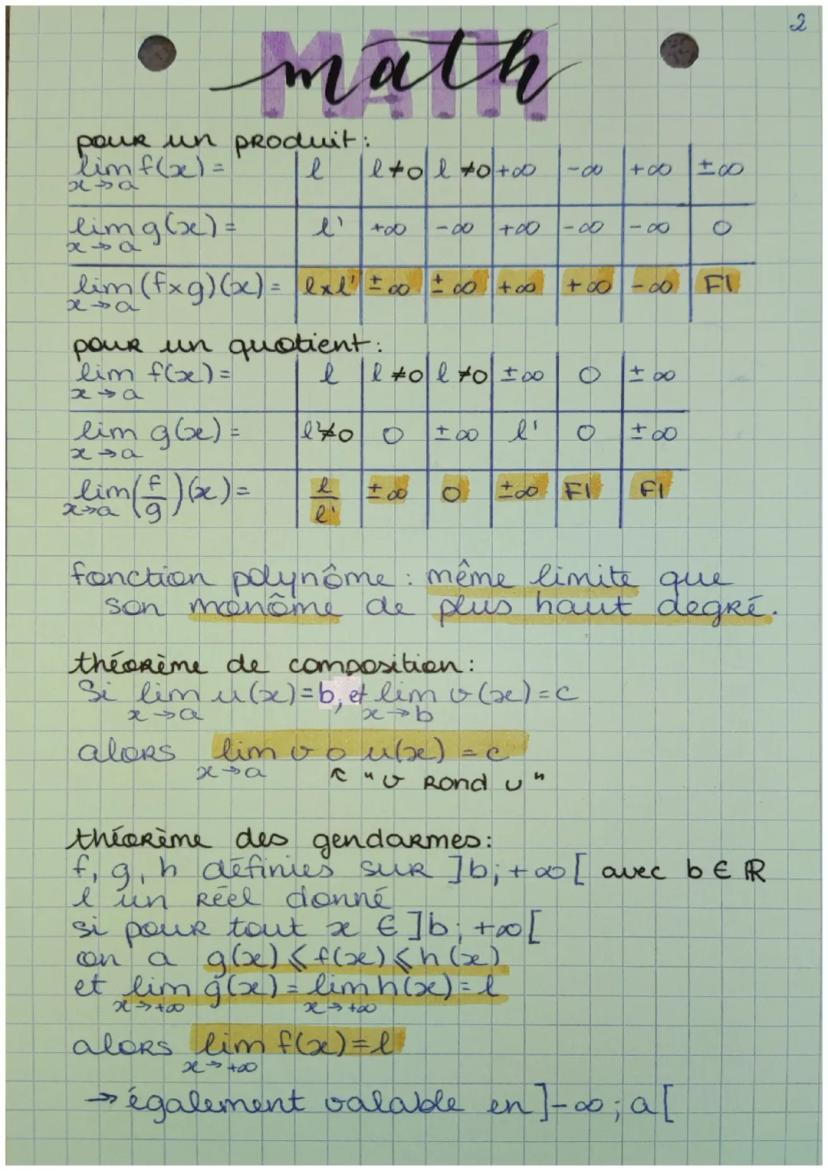 2
MATH
math
pour un produit:
lim f(x) = | l | l≠0 | l≠0 | +∞ | -∞ | +∞ | ±∞
x→a
lim g(x) = | l' | +∞ | -∞ | +∞ | -∞ | -∞ | 0
x→a
lim (f×g)(x) = | l×l' | ±∞ | ±∞ | +∞ | +∞ | -∞ | FI
x→a
pour un quotient:
lim f(x) = | l | l≠0 | l≠0 | ±∞ | 0 | ±∞
x→a
lim g(x) = | l'≠0 | 0 | ±∞ | l' | 0 | ±∞
x→a
lim (f/g)(x) = | l/l' | ±∞ | 0 | ±∞ | FI | FI
x→a
fonction polynôme : même limite que
son monôme de plus haut degré.
théorème de composition:
Si lim u(x)=b, et lim v(x)=c
x→a x→b
alors lim v o u(x) = c
x→a ↖ "v rond u"
théorème des gendarmes:
f, g, h définies sur ]b; +∞[ avec b ∈ ℝ
l un réel donné
si pour tout x ∈ ]b; +∞[
on a g(x) ⩽ f(x) ⩽ h(x)
et lim g(x) = lim h(x) = l
x→+∞ x→+∞
alors lim f(x) = l
x→+∞
→ également valable en ]-∞; a[